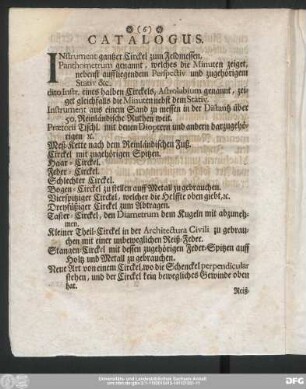 (6)
CATALOGUS.
INstrument gantzer Circkel zum Feldmessen,
Panthometrum genannt, welches die Minuten zeiget,
nebenst auffliegendem Perspectiv und zugehörigem
Stativ &c.
dito Instr. eines halben Circkels, Astrolabium genannt, zei-
get gleichfalls die Minuten nebst dem Stativ.
Instrument aus einem Stand zu messen in der Distantz über
50. Reinländische Ruthen weit.
Prætorii Tischl. mit denen Dioptern und andern darzugehö-
rigen &c.
Meß-Kette nach dem Reinländischen Fuß.
Circkel mit zugehörigen Spitzen.
Haar-Circkel.
Feder-Circkel.
Schlechter Circkel.
Bogen-Circkel zu stellen auff Metall zugebrauchen.
Vierspitziger Circkel, welcher die Helffte oben giebt, &c.
Dreyfüßiger Circkel zum Abtragen.
Taster-Circkel, den Diametrum dem Kugeln mit abzuneh-
men.
Kleiner Theil-Circkel in der Architectura Civili zu gebrau-
chen mit einer unbeweglichen Reiß-Feder.
Stangen-Circkel mit dessen zugehörigen Feder-Spitzen auff
Holtz und Metall zu gebrauchen.
Neue Art von einem Circkel, wo die Schenckel perpendicular
stehen, und der Circkel kein bewegliches Gewinde oben
hat.
Reiß-